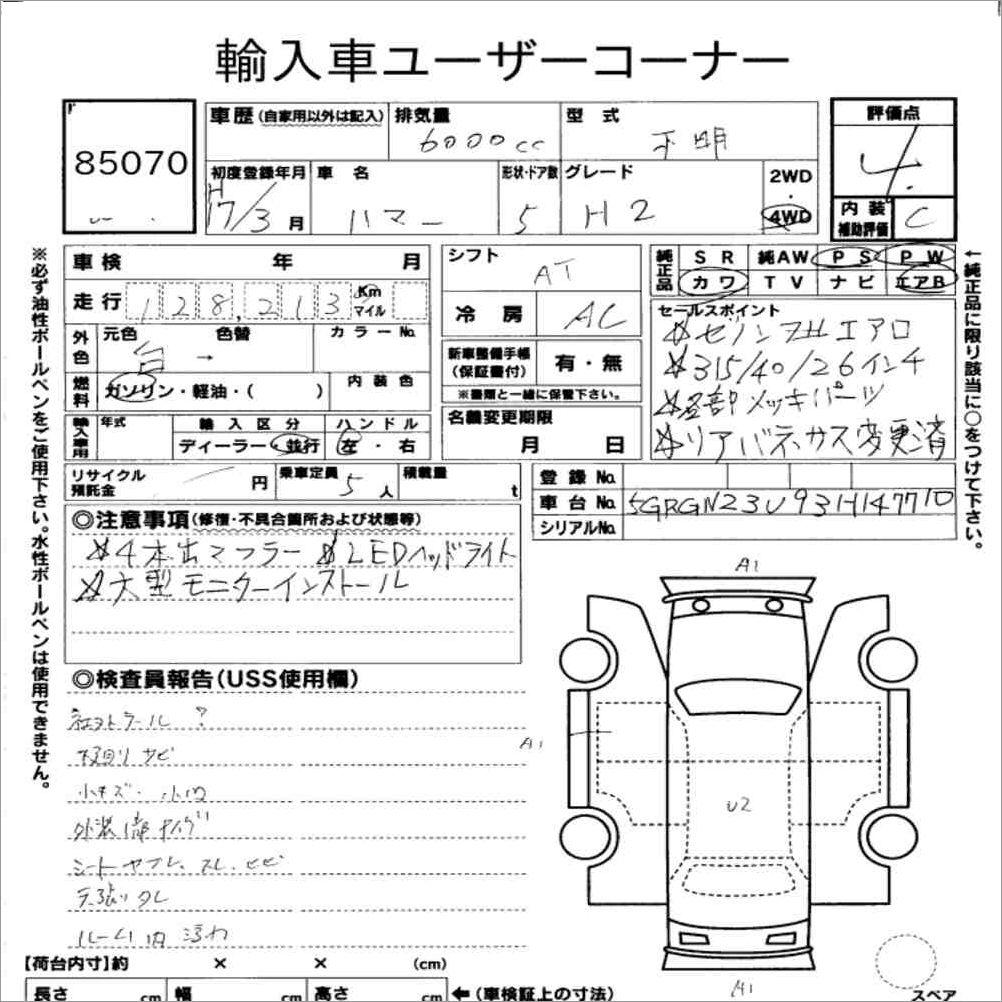 輸入車ユーザーコーナー
85070
車歴(自家用以外は記入)
排気量
6000cc
型式
不明
評価点
4
初度登録年月
H17/3月
車名
ハマー
形状・ドア数
5
グレード
H2
2WD
・
4WD
内装補助評価
C
※必ず油性ボールペンをご使用下さい。水性ボールペンは使用できません。
車検 年 月
走行
128,213
Km
マイル
シフト
AT
冷房
AC
純正品
SR 純AW PS PW
カワ TV ナビ エアB
←純正品に限り該当に○をつけて下さい。
外色
元色 色替
→
カラーNo.
燃料
ガソリン・軽油・( )
内装色
新車整備手帳
(保証書付)
有・無
※書類と一緒に保管下さい。
セールスポイント
315/40/26インチ
メッキパーツ
輸入車用
年式
輸入区分
ディーラー・並行
ハンドル
左・右
名義変更期限
月 日
リサイクル預託金
円
乗車定員
5人
積載量
t
登録No.
車台No.
5GRGN23U93H147710
シリアルNo.
◎注意事項(修復・不具合箇所および状態等)
4本出マフラー LEDヘッドライト
大型モニターインストール
◎検査員報告(USS使用欄)
下回りサビ
小キズ・小凹
シートヤブレ、スレ、ヒビ
天張りタレ
ルーム内
A1
A1
U2
A1
スペア
【荷台内寸】約 × × (cm)
長さ cm 幅 cm 高さ cm ←(車検証上の寸法)